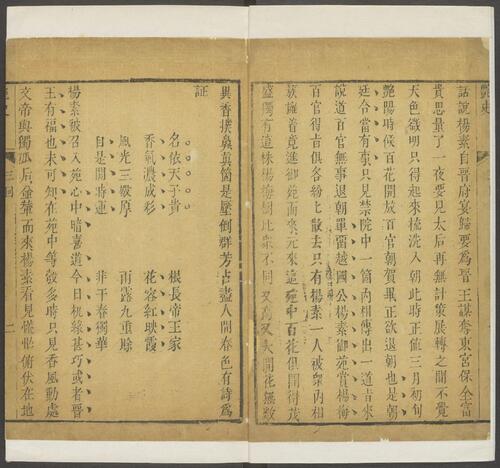 艷史
話說楊素自晉府宴歸要爲晉王謀奪東宮保全富
貴思量了一夜要見太后再無計策展轉之間不覺
天色微明只得起來梳洗入朝此時正值三月初旬
艷陽時候百花開放百官朝賀畢正欲退朝也是朝
廷合當有事只見禁院中一箇內相傳出一道旨來
說道百官無事退朝單留越國公楊素御苑賞楊梅
百官得旨俱各紛紛散去只有楊素一人被衆內相
簇擁着竟進御苑而來元來這苑中百花俱開得茂
盛獨有這株楊梅樹比衆不同又高又大開花無數
異香撲鼻眞箇是壓倒群芳占盡人間春色有詩爲
証
名依天子貴 根長帝王家
香氣濃成彩 花容紅映霞
風光三殿厚 雨露九重賒
自是開時運 非干春獨華
楊素被召入苑心中暗喜道今日机緣甚巧或者晉
王有福也未可知在苑中等彀多時只見香風動處
文帝與獨孤后金輦而來楊素看見慌忙俯伏在地
三回 二